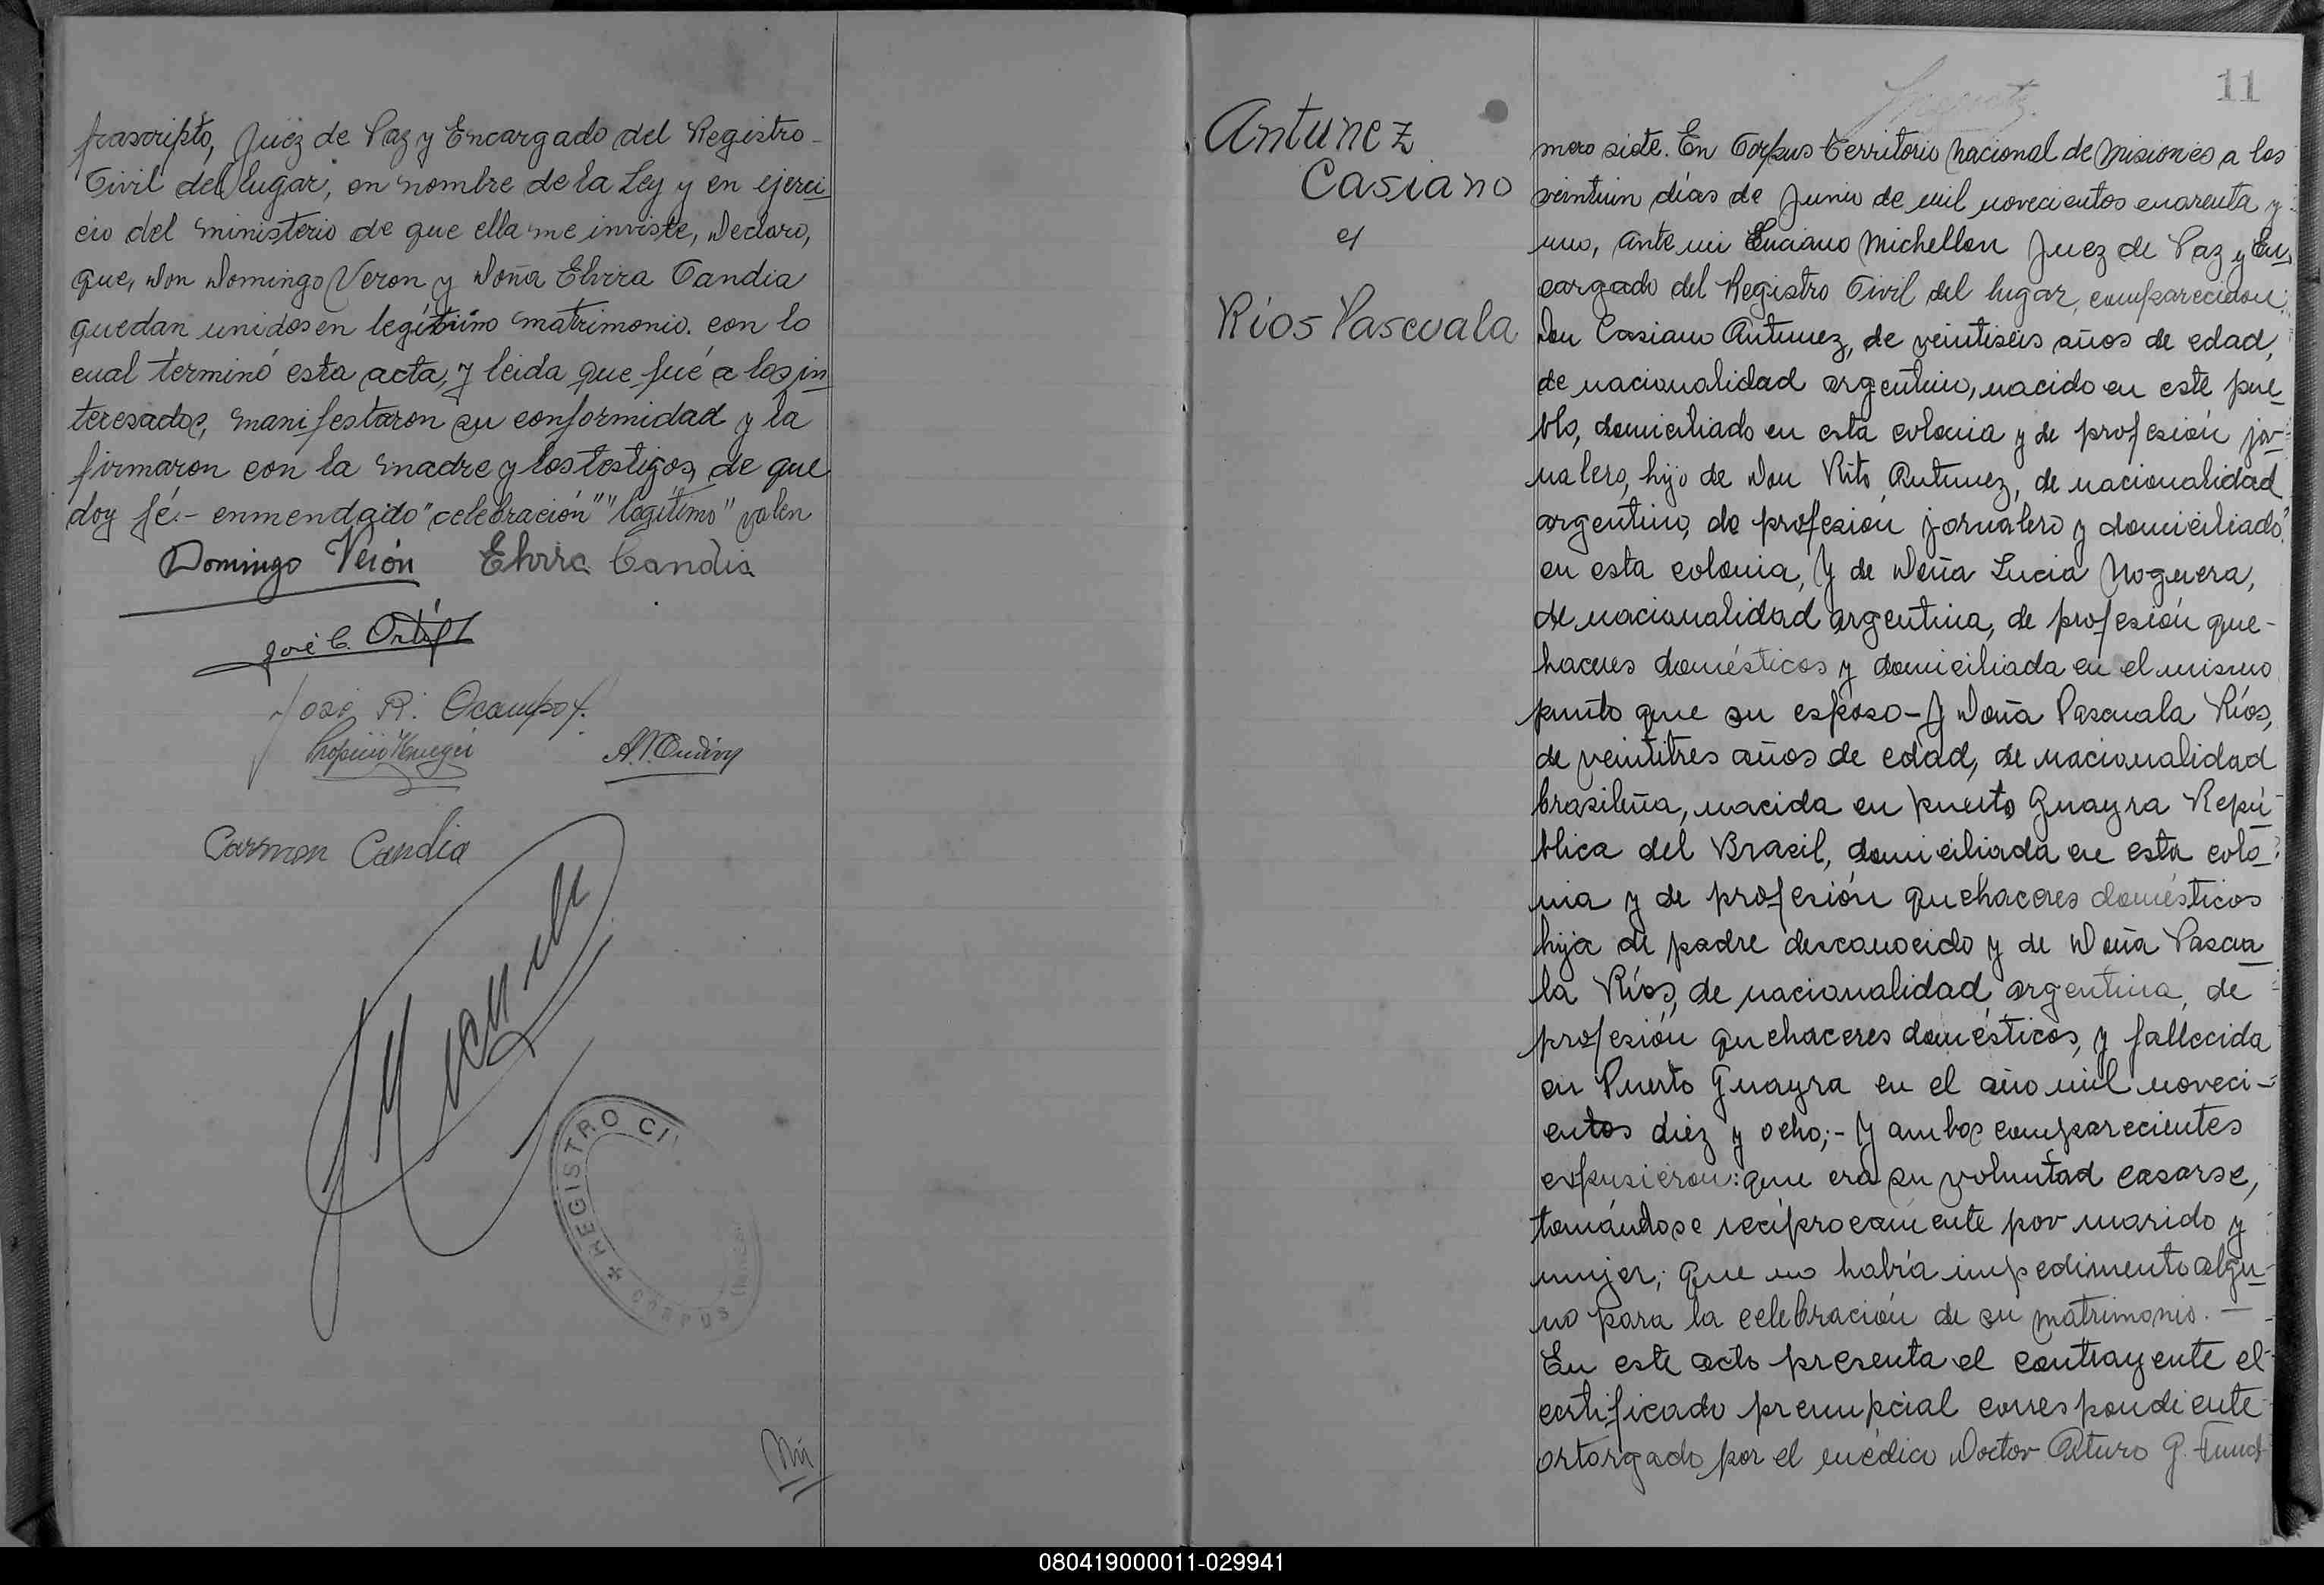 frascripto, Juez de Paz y Encargado del Registro
Civil del lugar, en nombre de la Ley y en ejerci
cio del ministerio de que ella me inviste, Declaro,
que, Don Domingo Veron y Doña Elvira Candia
quedan unidos en legítimo matrimonio. con lo
cual terminó esta acta, y leida que fué a los in
teresados, manifestaron su conformidad y la
firmaron con la madre y los testigos, de que
doy fé.- enmendado "celebración" "legítimo" valen
Domingo Verón Elvira Candia
José C. Ortiz
José R. Ocampo
Carmen Candia
REGISTRO CI
CORPUS
Nú
11
Antunez
Casiano
y
Ríos Pascuala
mero siete. En Corpus Territorio Nacional de Misiones a los
veintiun días de Junio de mil novecientos cuarenta y
uno, ante mi Luciano Michellon Juez de Paz y En
cargado del Registro Civil del lugar, comparecieron:
Don Casiano Antunez, de veintiseis años de edad,
de nacionalidad argentino, nacido en este pue
blo, domiciliado en esta colonia y de profesión jor
nalero, hijo de Don Rito Antunez, de nacionalidad
argentino, de profesión jornalero y domiciliado
en esta colonia, Y de Doña Lucia Noguera,
de nacionalidad argentina, de profesión que-
haceres domésticos y domiciliada en el mismo
punto que su esposo- Y Doña Pascuala Ríos,
de veintitres años de edad, de nacionalidad
brasileña, nacida en puerto Guayra Repú
blica del Brasil, domiciliada en esta colo
nia y de profesión quehaceres domésticos
hija de padre desconocido y de Doña Pascua
la Ríos, de nacionalidad argentina, de
profesión quehaceres domésticos, y fallecida
en Puerto Guayra en el año mil noveci-
entos diez y ocho;- Y ambos comparecientes
expusieron: que era su voluntad casarse,
tomándose recíprocamente por marido y
mujer; que no había impedimento algu
no para la celebración de su matrimonio. —
En este acto presenta el contrayente el
certificado prenupcial correspondiente
ortorgado por el médico Doctor Arturo G.
080419000011-029941